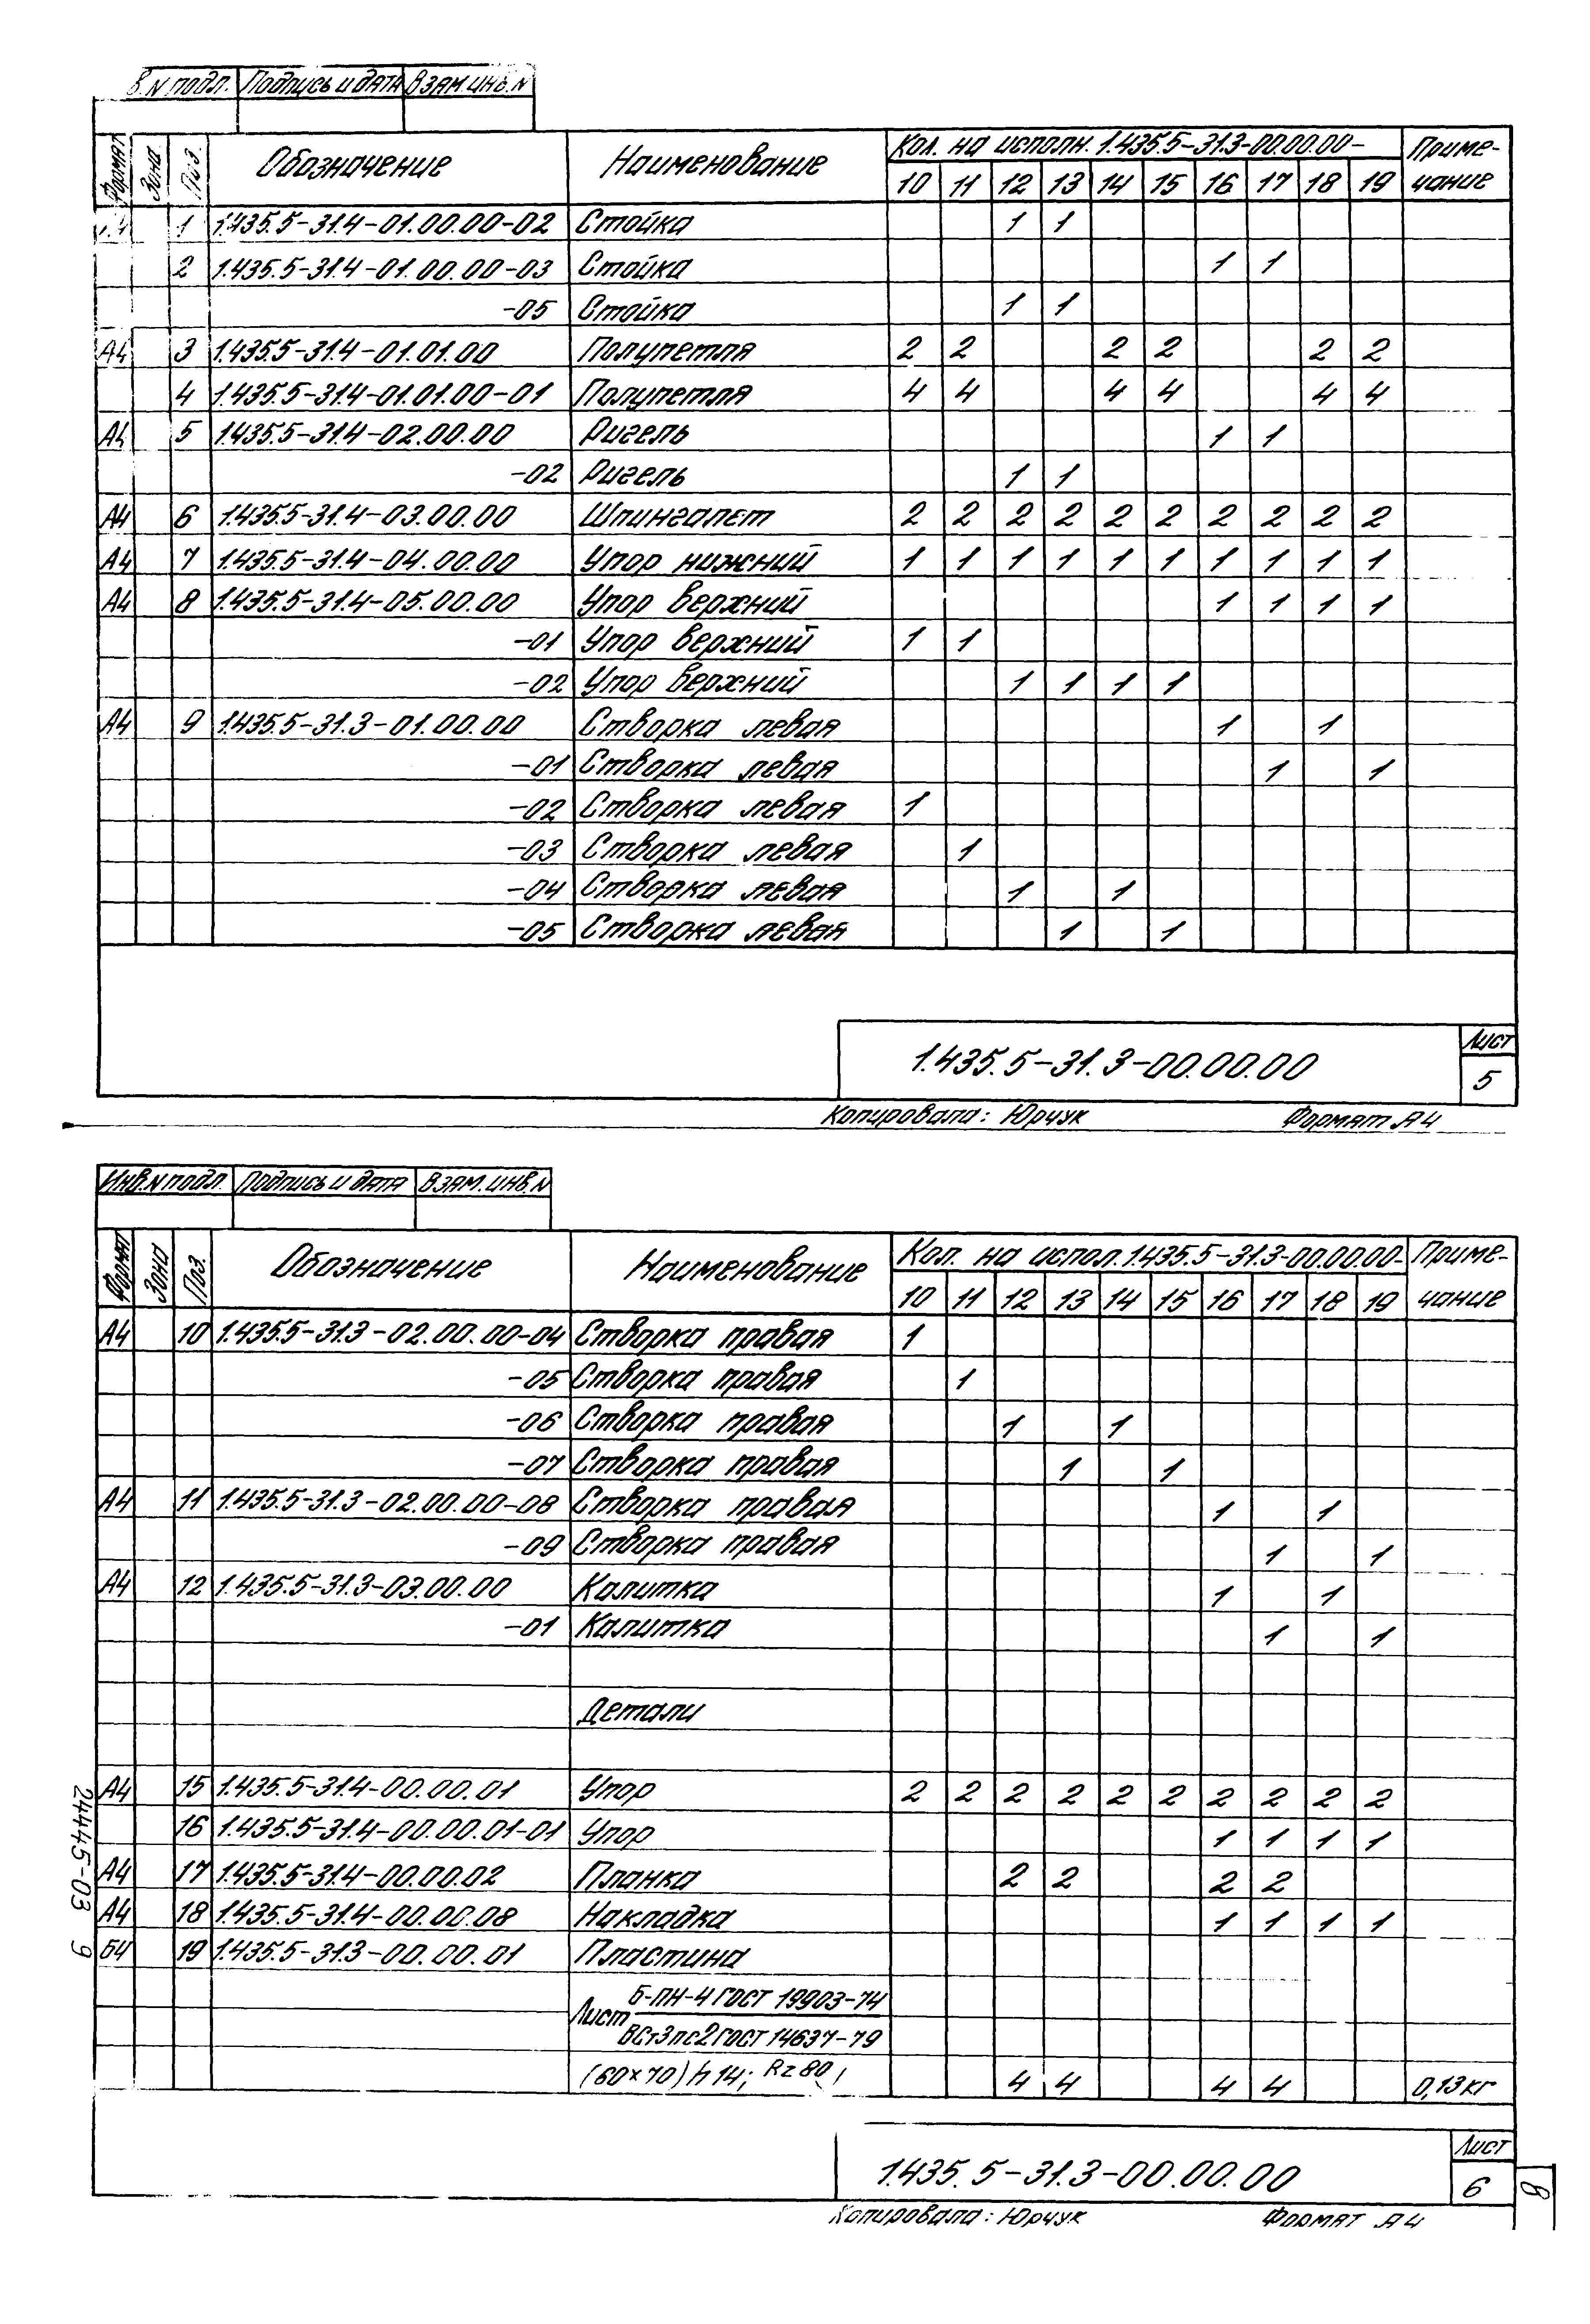 В.N подл. Подпись и дата Взам.инв.N
Формат Зона Поз. Обозначение Наименование Кол. на исполн. 1.435.5-31.3-00.00.00- Приме-
10 11 12 13 14 15 16 17 18 19 чание
1 1.435.5-31.4-01.00.00-02 Стойка 1 1
2 1.435.5-31.4-01.00.00-03 Стойка 1 1
-05 Стойка 1 1
А4 3 1.435.5-31.4-01.01.00 Полупетля 2 2 2 2 2 2
4 1.435.5-31.4-01.01.00-01 Полупетля 4 4 4 4 4 4
А4 5 1.435.5-31.4-02.00.00 Ригель 1 1
-02 Ригель 1 1
А4 6 1.435.5-31.4-03.00.00 Шпингалет 2 2 2 2 2 2 2 2 2 2
А4 7 1.435.5-31.4-04.00.00 Упор нижний 1 1 1 1 1 1 1 1 1 1
А4 8 1.435.5-31.4-05.00.00 Упор верхний 1 1 1 1
-01 Упор верхний 1 1
-02 Упор верхний 1 1 1 1
А4 9 1.435.5-31.3-01.00.00 Створка левая 1 1
-01 Створка левая 1 1
-02 Створка левая 1
-03 Створка левая 1
-04 Створка левая 1 1
-05 Створка левая 1 1
1.435.5-31.3-00.00.00 Лист
5
Копировала: Юрчук Формат А4
Инв.N подл. Подпись и дата Взам.инв.N
Формат Зона Поз. Обозначение Наименование Кол. на испол. 1.435.5-31.3-00.00.00- Приме-
10 11 12 13 14 15 16 17 18 19 чание
А4 10 1.435.5-31.3-02.00.00-04 Створка правая 1
-05 Створка правая 1
-06 Створка правая 1 1
-07 Створка правая 1 1
А4 11 1.435.5-31.3-02.00.00-08 Створка правая 1 1
-09 Створка правая 1 1
А4 12 1.435.5-31.3-03.00.00 Калитка 1 1
-01 Калитка 1 1
Детали
А4 15 1.435.5-31.4-00.00.01 Упор 2 2 2 2 2 2 2 2 2 2
16 1.435.5-31.4-00.00.01-01 Упор 1 1 1 1
А4 17 1.435.5-31.4-00.00.02 Планка 2 2 2 2
А4 18 1.435.5-31.4-00.00.08 Накладка 1 1 1 1
Б4 19 1.435.5-31.3-00.00.01 Пластина
Б-ПН-4 ГОСТ 19903-74
Лист
ВСт3пс2 ГОСТ 14637-79
(60×70) h 14; Rz 80 4 4 4 4 0,13кг
24445-03 9
1.435.5-31.3-00.00.00 Лист
6
8
Копировала: Юрчук Формат А4